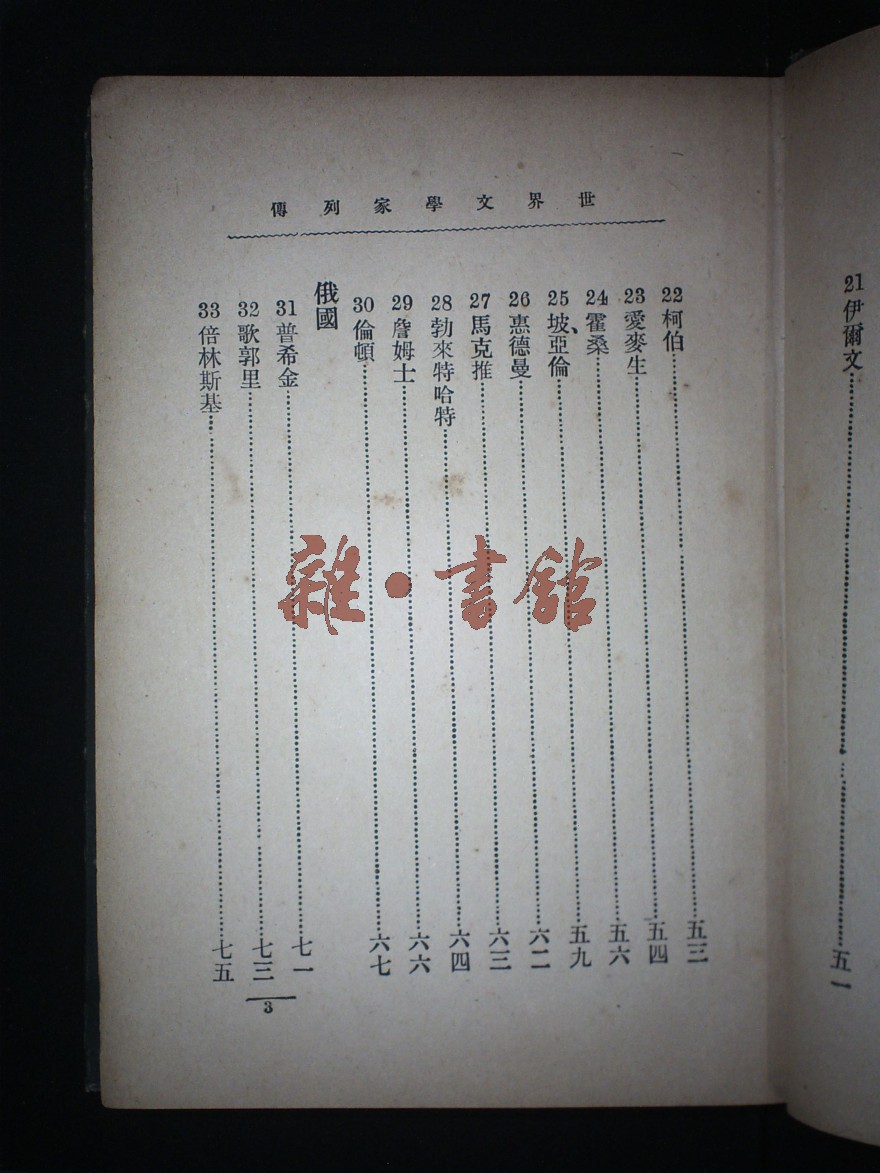 21 伊爾文……五一
世界文學家列傳
22 柯伯……五三
23 愛麥生……五四
24 霍桑……五六
25 坡、亞倫……五九
26 惠德曼……六二
27 馬克推……六三
28 勃來特哈特……六四
29 詹姆士……六六
30 倫頓……六七
俄國
31 普希金……七一
32 歌郭里……七三
33 倍林斯基……七五
3
雜·書館